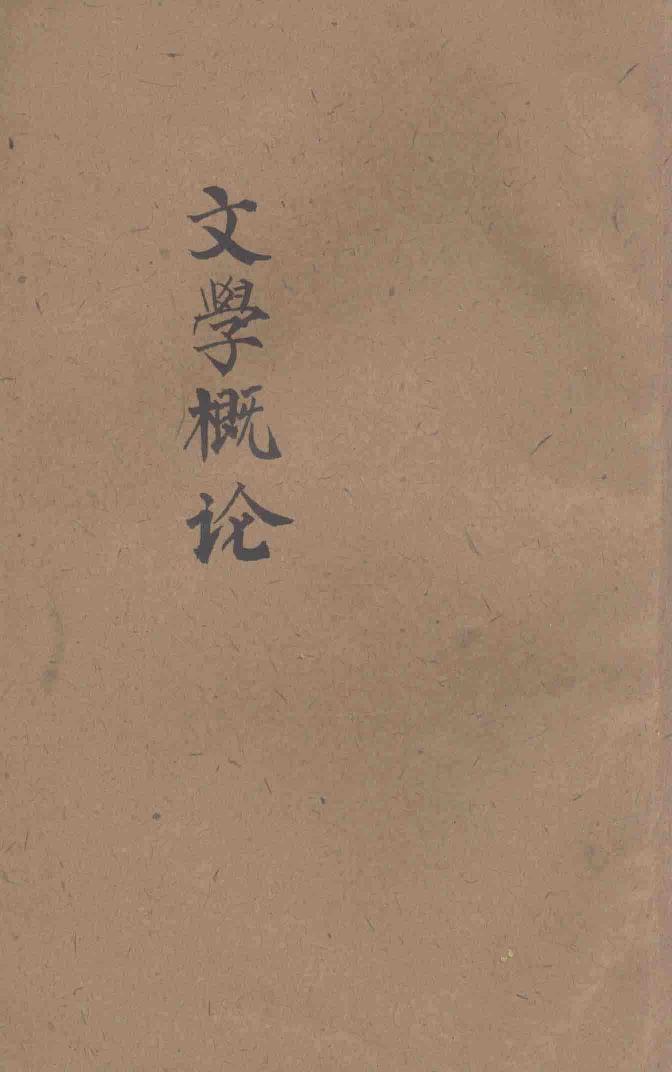 文學概论